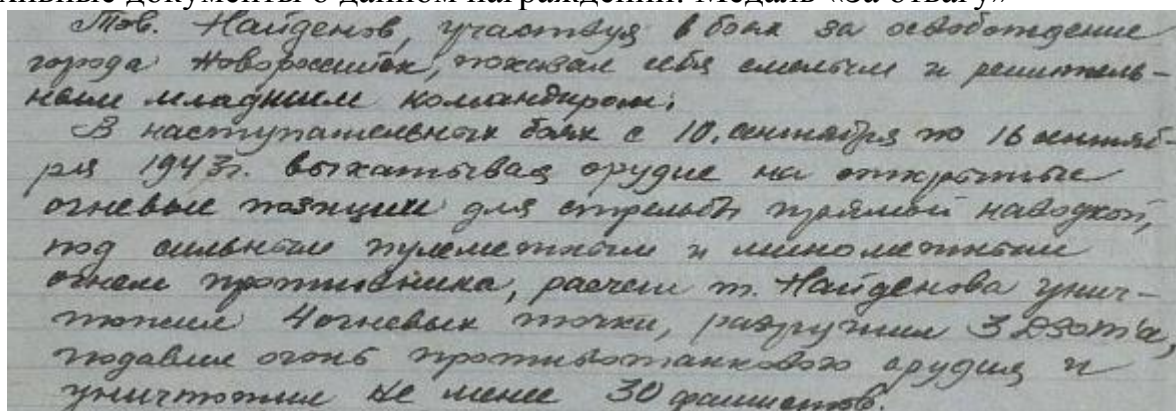 ивные документы о данном награждении: Медаль «За отвагу»
Тов. Найденов, участвуя в боях за освобождение
города Новороссийск, показал себя смелым и решитель-
ным младшим командиром.
В наступательных боях с 10. сентября по 16 сентяб-
ря 1943г. выкатывая орудие на открытые
огневые позиции для стрельбы прямой наводкой,
под сильным пулеметным и минометным
огнем противника, расчет т. Найденова унич-
тожил 4 огневых точки, разрушил 3 дзот'а,
подавил огонь противотанкового орудия и
уничтожил не менее 30 фашистов.